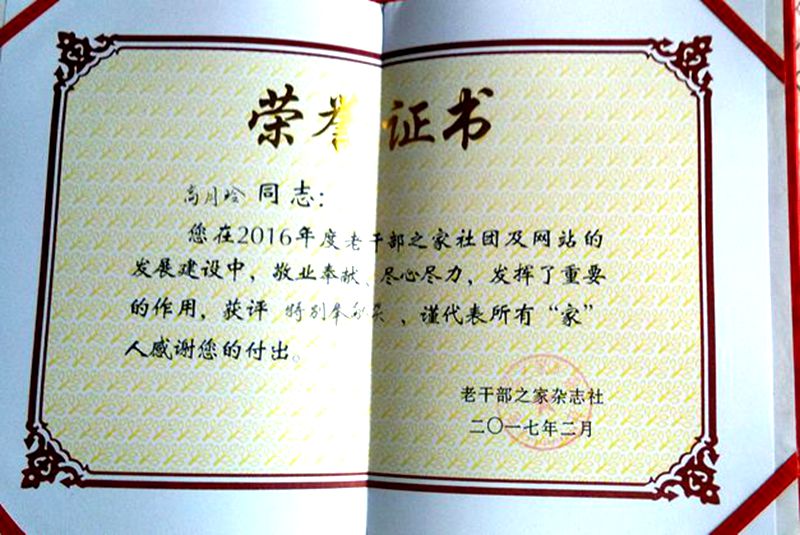 荣誉证书
高月玲同志：
您在2016年度老干部之家社团及网站的
发展建设中，敬业奉献、尽心尽力，发挥了重要
的作用，获评 特别奉献奖 、谨代表所有“家”
人感谢您的付出。
老干部之家杂志社
二〇一七年二月